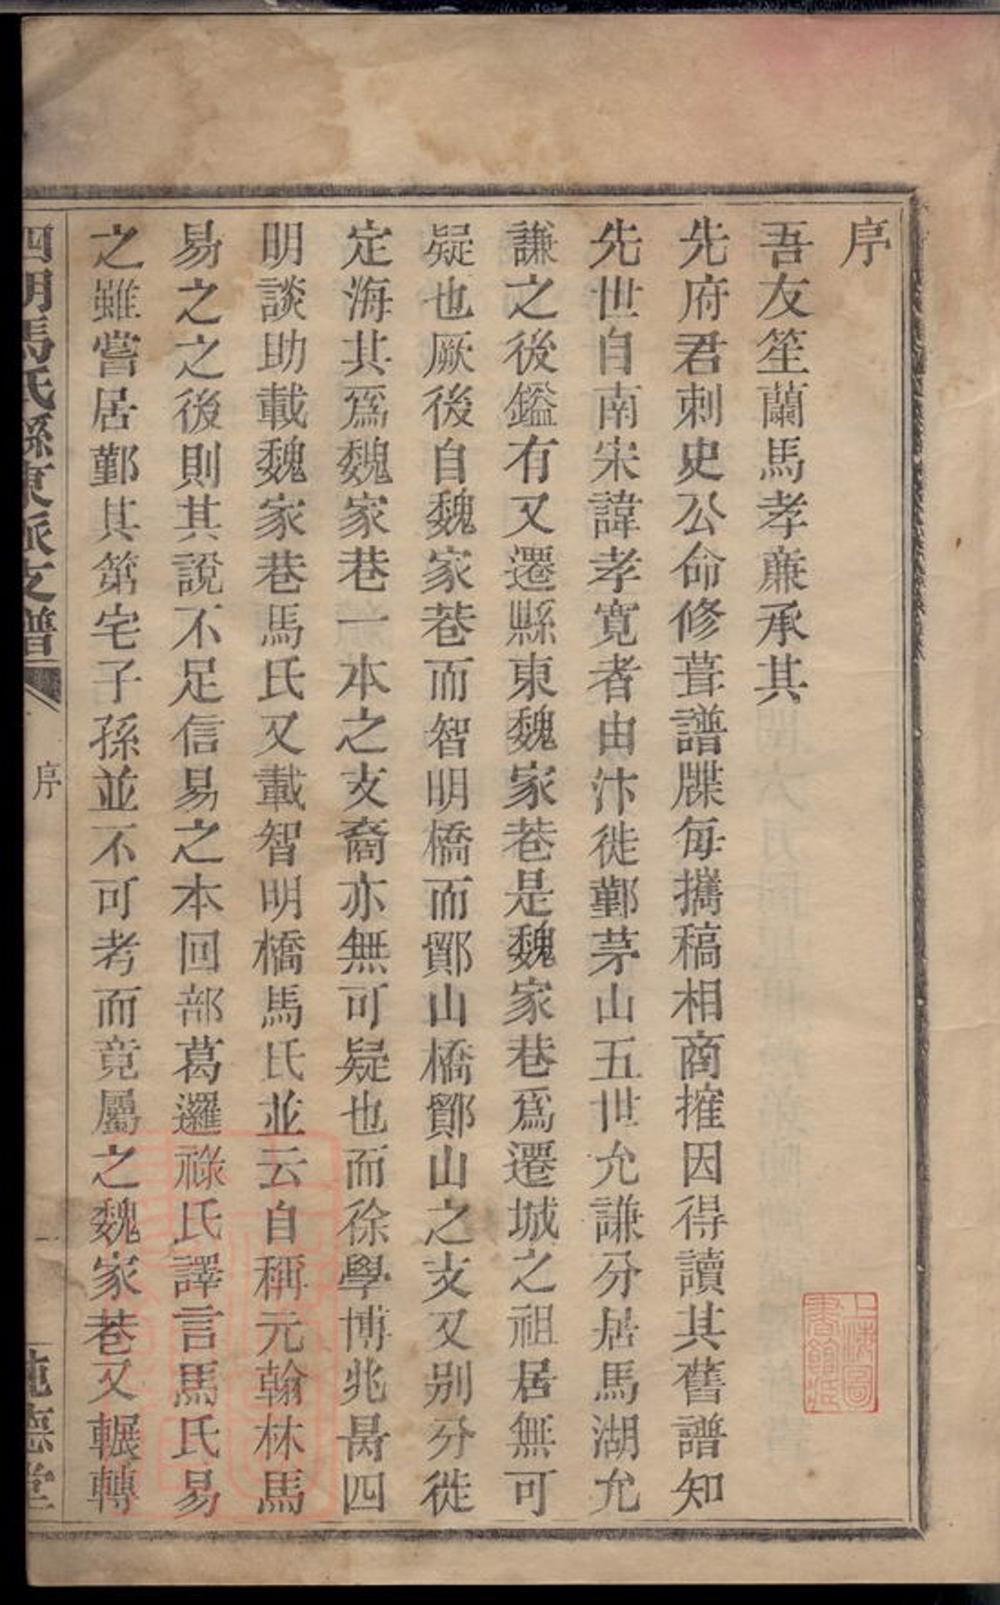 序
吾友笙蘭馬孝廉承其
先府君刺史公命修葺譜牒每攜稿相商搉因得讀其舊譜知
先世自南宋諱孝寬者由汴徙鄞茅山五世允謙分居馬湖允
謙之後鎰有又遷縣東魏家巷是魏家巷爲遷城之祖居無可
疑也厥後自魏家巷而智明橋而鄮山橋鄮山之支又別分徙
定海其爲魏家巷一本之支裔亦無可疑也而徐學博兆昺四
明談助載魏家巷馬氏又載智明橋馬氏並云自稱元翰林馬
易之之後則其說不足信易之本回部葛邏祿氏譯言馬氏易
之雖嘗居鄞其第宅子孫並不可考而竟屬之魏家巷又輾轉
四明馬氏縣東派支譜 序 一
上海圖書館藏